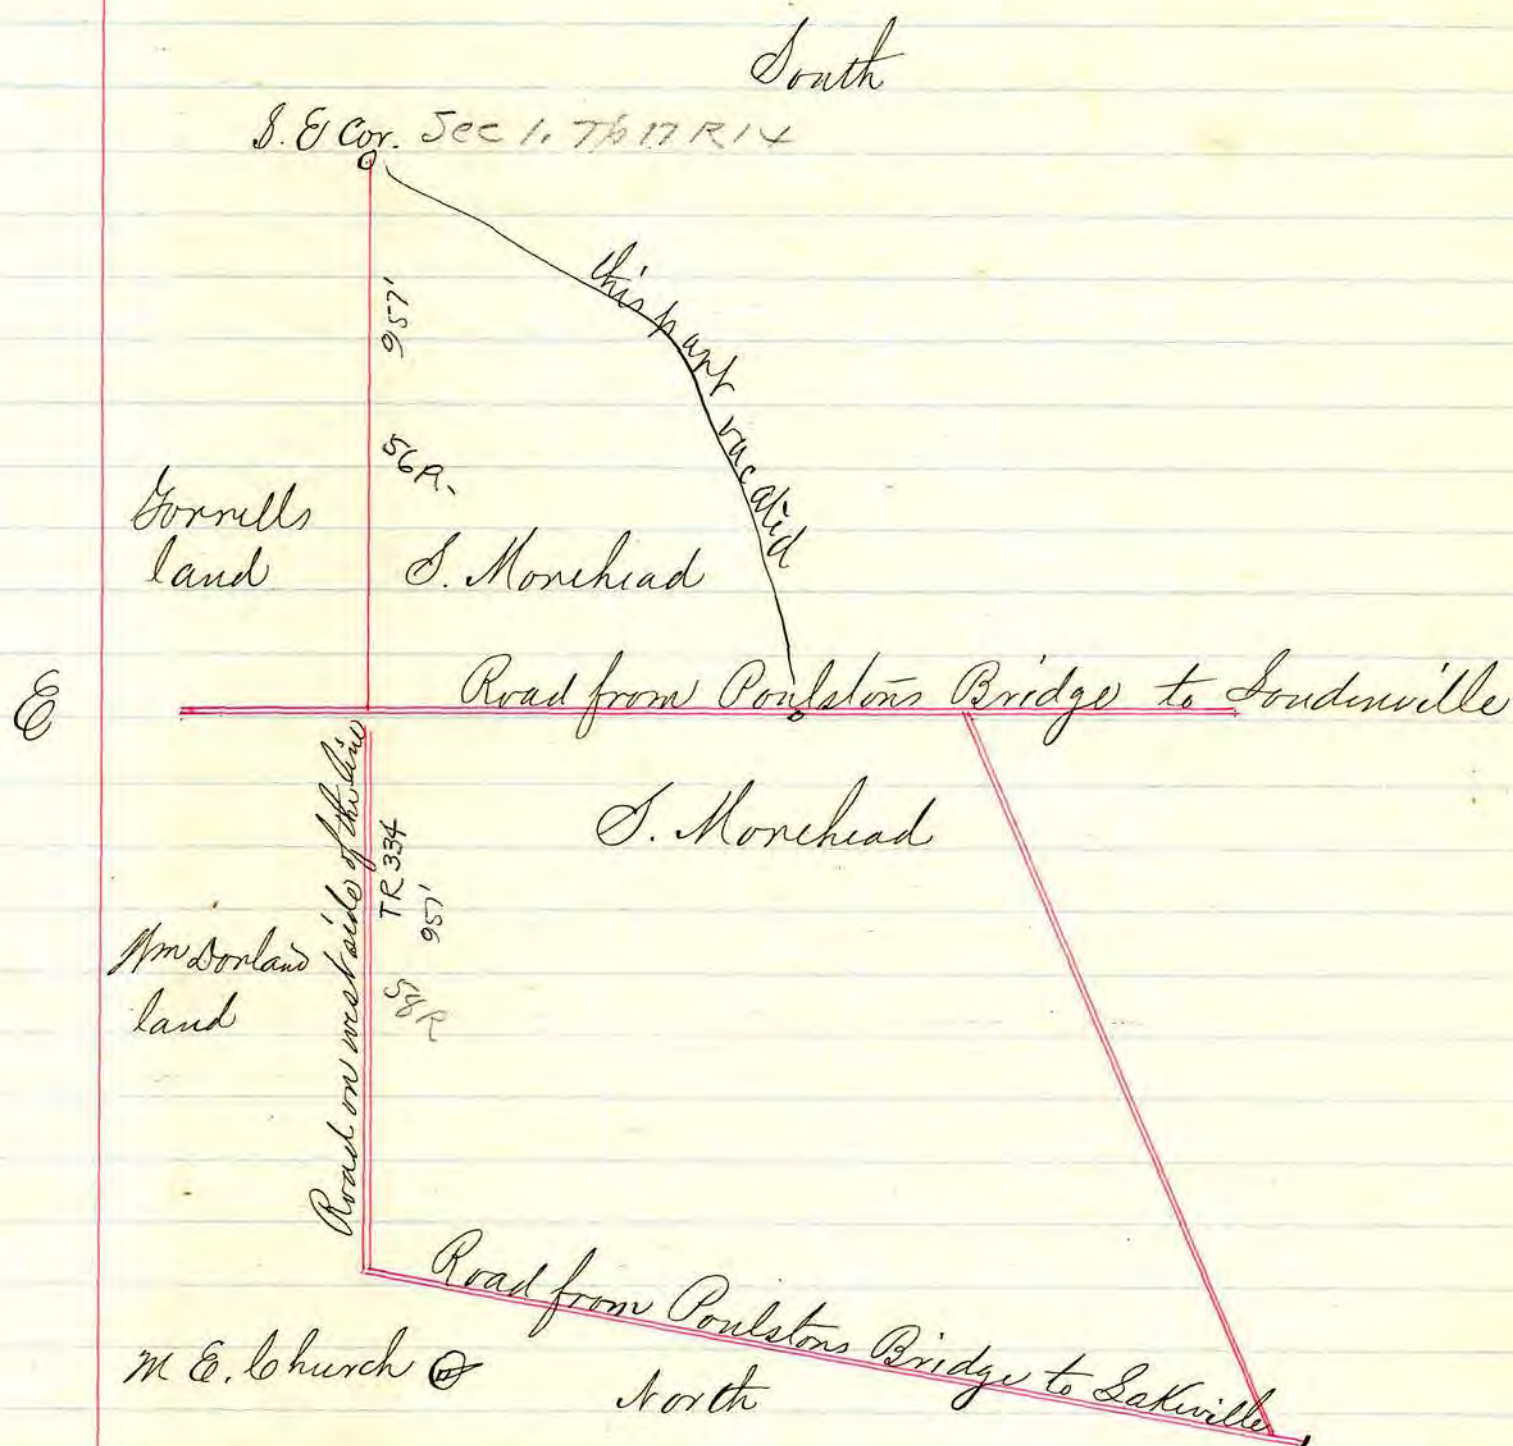 South
S. E Cor. Sec 1. Tp 17 R 14
957'
56R.
this part vacated
Gorrells
land
S. Morehead
E
Road from Poulstons Bridge to Loudinville
Road on west side of the line
TR 334
957'
58R
S. Morehead
Wm Dorland
land
Road from Poulstons Bridge to Lakeville
M E. Church
North